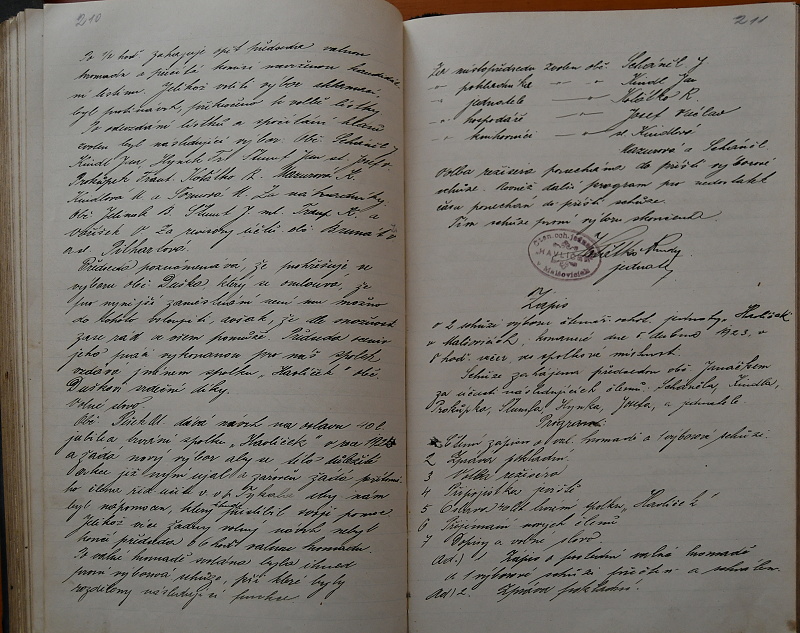 210
Po ½ hod zahajuje opět předseda valnou
hromadu a přečítá komisí navrženou kandidát
ní listinu. Jelikož volit výbor aklamací
byl protinávrh, přikročeno k volbě lístky.
Po odevzdání lístků a spočítání hlasů
zvolen byl následující výbor. Obč. Scháněl J
Kindl Jan, Hynek Fr. Štumf Jan st. Josef V.
Prokůpek Frant. Kolátko R. Mazurová K.
Kindlová M. a
Obč. Jelínek B. Štumf J ml. K. a
V. Za revisory účtů obč.
a sl.
Předseda poznamenává, že pohřešuje ve
výboru obč. Duška který se omlouvá, že
pro nynější zaměstnání není mu možno
do tohoto vstoupiti, avšak, že dle možnosti
zase rád a všem pomůže. Předseda cení
jeho práci vykonanou pro náš spolek
vzdává jménem spolku „Havlíček" obč.
Duškovi srdečné díky.
Volné slovo.
Obč. dává návrh na oslavu 40 l.
jubilea trvání spolku „Havlíček" v roce
a žádá nový výbor aby se této důležité
již nyní ujal a zároveň žádá přítomné
ho člena říd. uč. v. v. p. Tykala aby nám
byl nápomocen, který přislíbil svoji pomoc
Jelikož více žádný volný návrh nebyl
končí předseda v 6 hod. valnou hromadu.
Po valné hromadě svolána byla ihned
první výborová schůze, při které byly
rozděleny následující funkce
211
Za místopředsedu zvolen obč. Scháněl J
„ pokladníka — „ — Kindl Jan
„ jednatele — „ — Kolátko R.
„ hospodáře — „ — Josef Václav
„ knihovníci — „ — sl. Kindlová
Mazurová a Scháněl.
Volba režiséra ponechána do příští výborové
schůze. Rovněž další program pro nedostatek
času ponechán do příští schůze.
Tím schůze první výboru skončena
Čten. och. jednota
HAVLÍČEK
v Malšovicích
jednatel
Zápis
o 2 schůzi výborové čtenář. ochot. jednoty „Havlíček
v Malšovicích, konané dne 5 dubna 1923, v
8 hod. večer ve spolkové místnosti.
Schůze zahájena předsedou obč. Janáčkem
za účasti následujících členů. Scháněla, Kindla,
Prokůpka, Štumfa, Hynka, Josefa, a jednatele.
Program.
1 Čtení zápisu o val. hromadě a 1 výborové schůzi.
2 Zpráva pokladní.
3 Volba režiséra
4 Přípojka
5 Oslava 40 let trvání spolku „Havlíček"
6 Přijímání nových členů
7 Dopisy a volné slovo.
Ad.) 1. Zápis o poslední valné hromadě
a 1 výborové schůzi přečten a schválen.
Ad) 2. Zpráva pokladní.